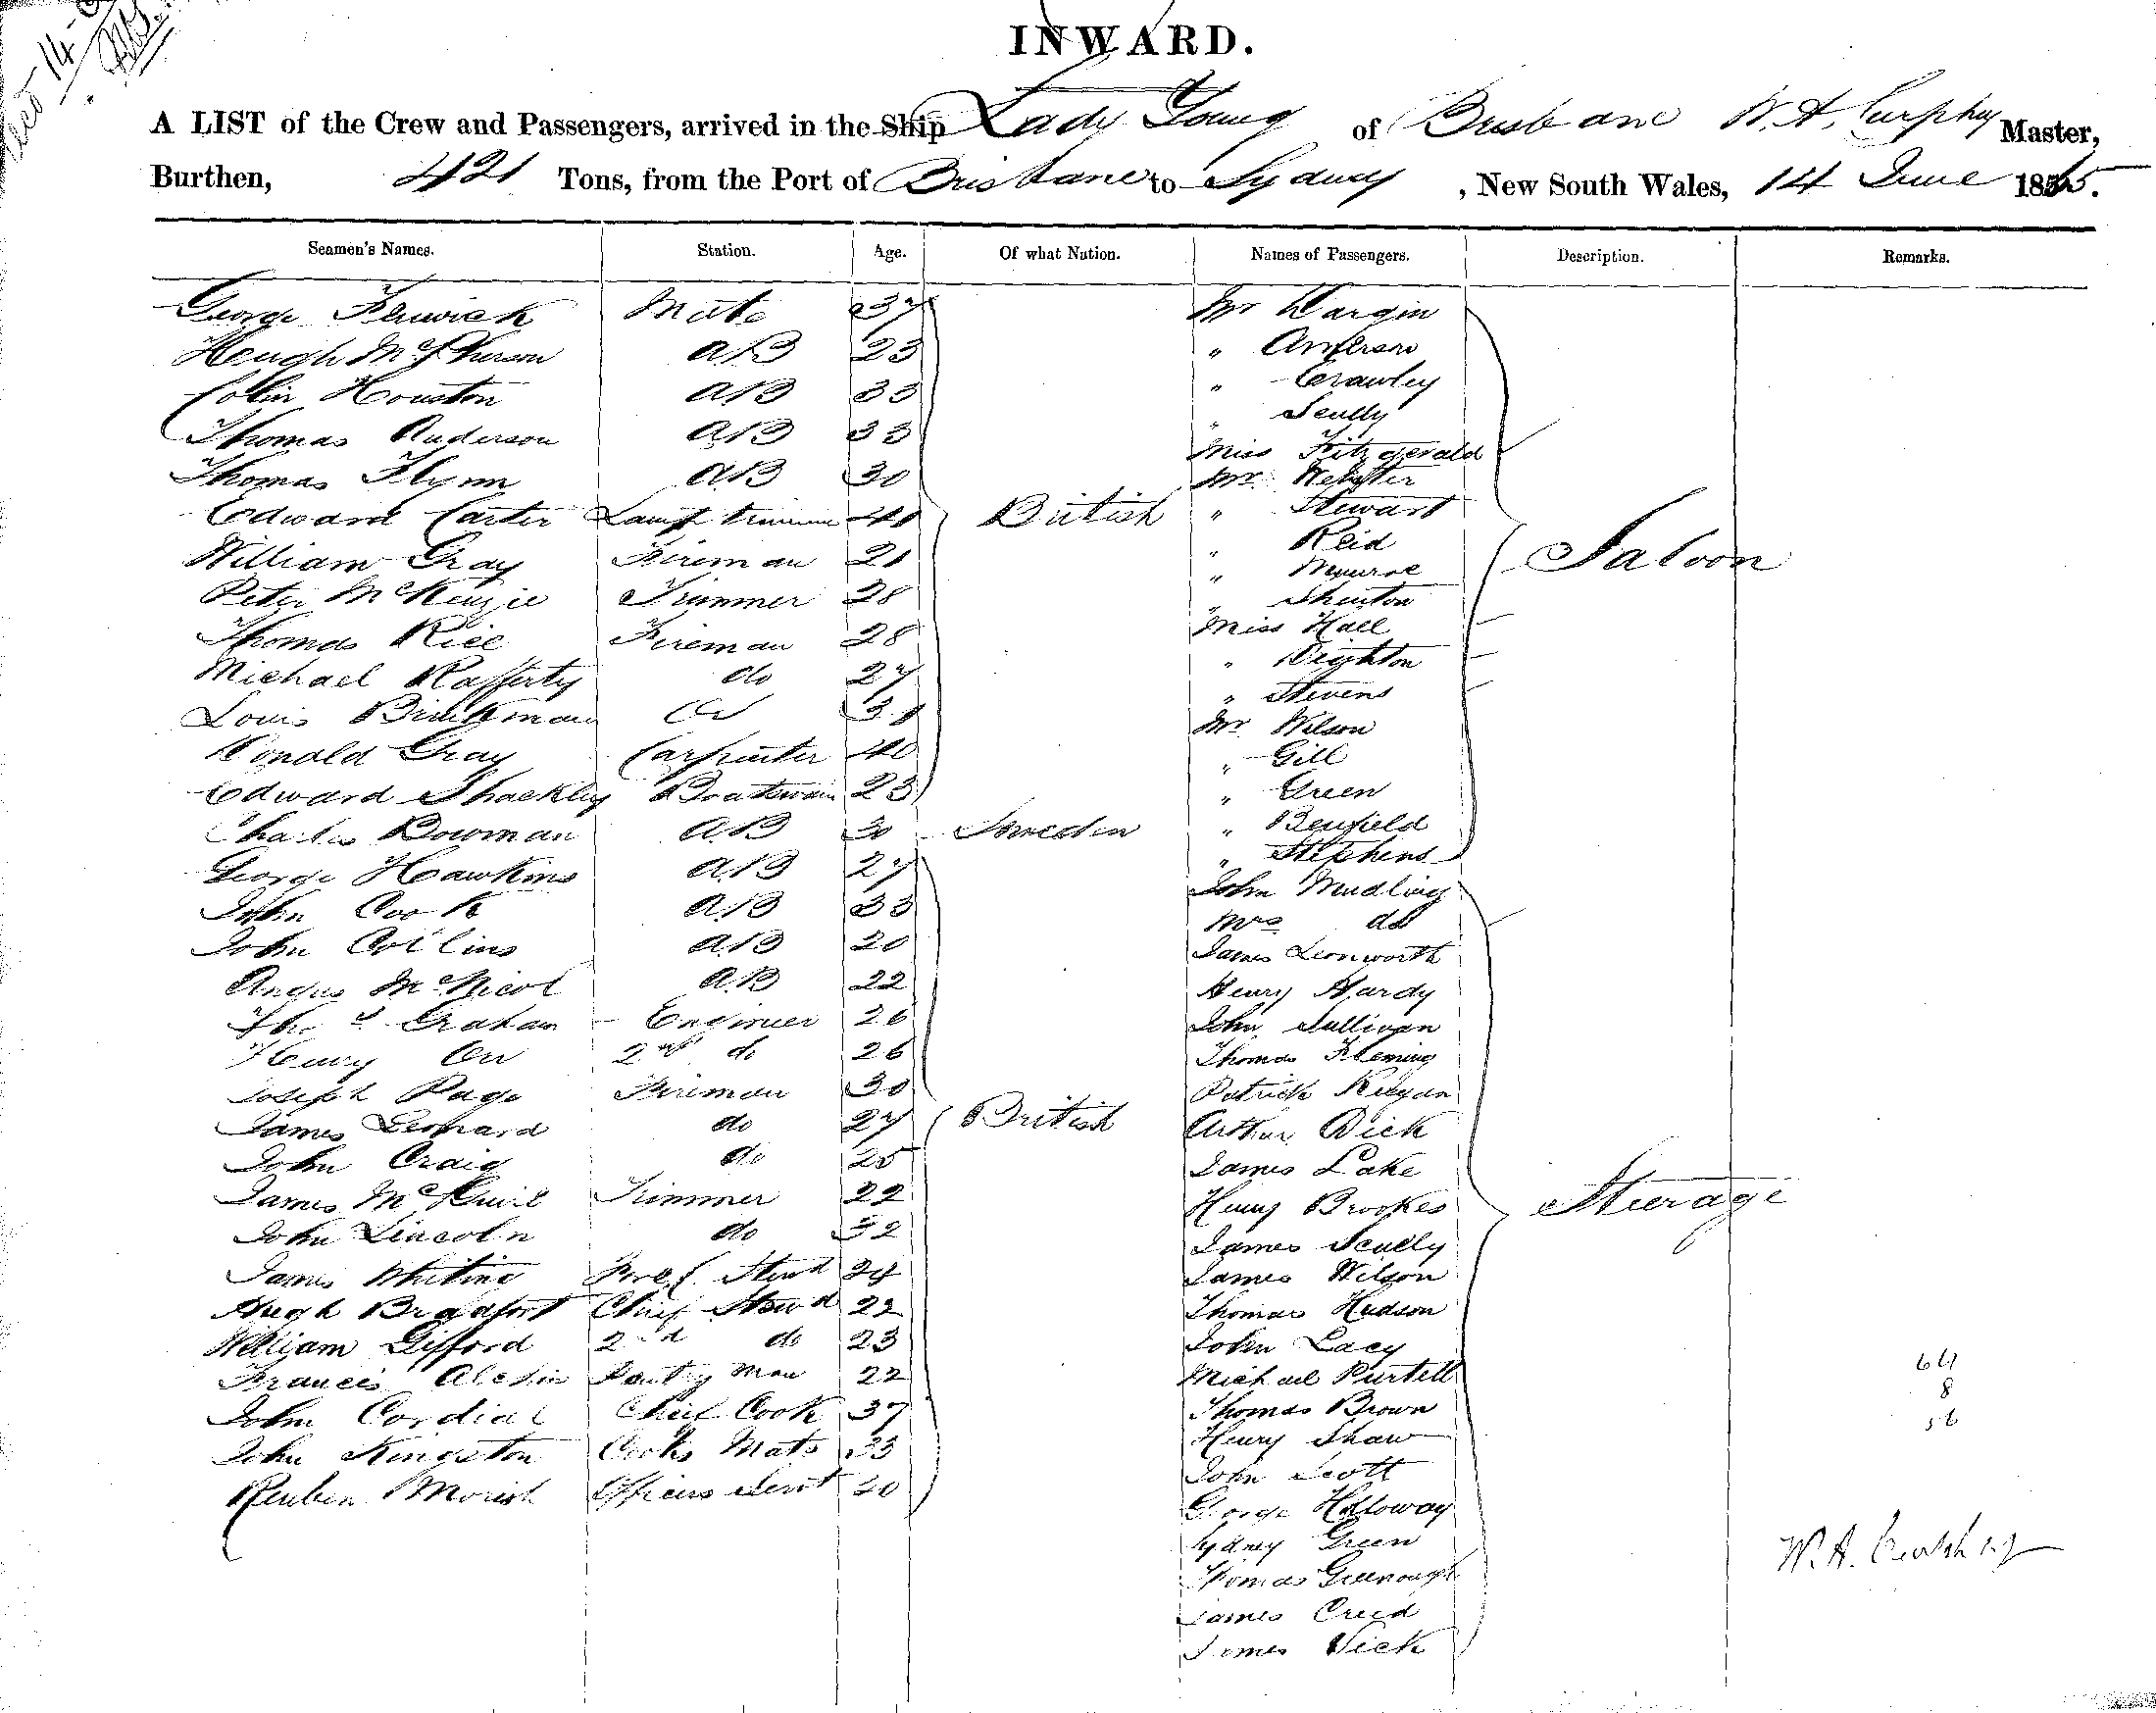 INWARD.
A LIST of the Crew and Passengers, arrived in the Ship Lady Young of Brisbane W. A. Curphey Master,
Burthen, 421 Tons, from the Port of Brisbane to Sydney , New South Wales, 14 June 1865.
Seamen's Names. Station. Age. Of what Nation. Names of Passengers. Description. Remarks.
George Fenwick Mate 37
Hough McPherson AB 23
Colin Houston AB 33
Thomas Anderson AB 33
Thomas Flynn AB 30
Edward Carter Lamp trimmer British
William Gray Fireman 21
Peter McKenzie Trimmer 28
Thomas Rice Fireman 28
Michael Rafferty do 27
Louis Brinkman
Donald Gray Carpenter 40
Edward Shackley Boatswain 23
Charles Bowman AB 30 Sweden
George Hawkins AB 27
John Cook AB 33
John Collins AB 20
Angus McNicol AB 22
Thos Graham Engineer 26
Henry Orr 2nd do 26
Joseph Page Fireman 30
James Leonard do 27 British
John Craig do 25
James McGuire Trimmer 22
John Lincoln do 32
James Whiting Stewd 24
Hugh Bradford Chief Stewd 22
William Gifford 2nd do 23
Francis Pantry Man 22
John Cordial Chief Cook 37
John Kingston Cooks Mate 33
Reuben Morish Officers Servt 20
Mr Dargin
" Anderson
" Crawley
" Scully
Miss Fitzgerald
Mr Webster
" Stewart
" Reid
" Munroe
" Shenton
Miss Hall
" Deighton
" Stevens
Mr Wilson
" Gill
" Green
" Benfield
" Stephens
Saloon
John Mudling
Mrs do
James Leonworth
Henry Hardy
John Sullivan
Thomas Fleming
Patrick Keegan
Arthur Dick
James Lake
Henry Brookes
James Scully
James Wilson
Thomas Hudson
John Lacy
Michael Purtell
Thomas Brown
Henry Shaw
John Scott
George Holloway
Sydney Green
Thomas Greenough
James Creed
James Vick
Steerage
64
8
56
W. A. Curphey